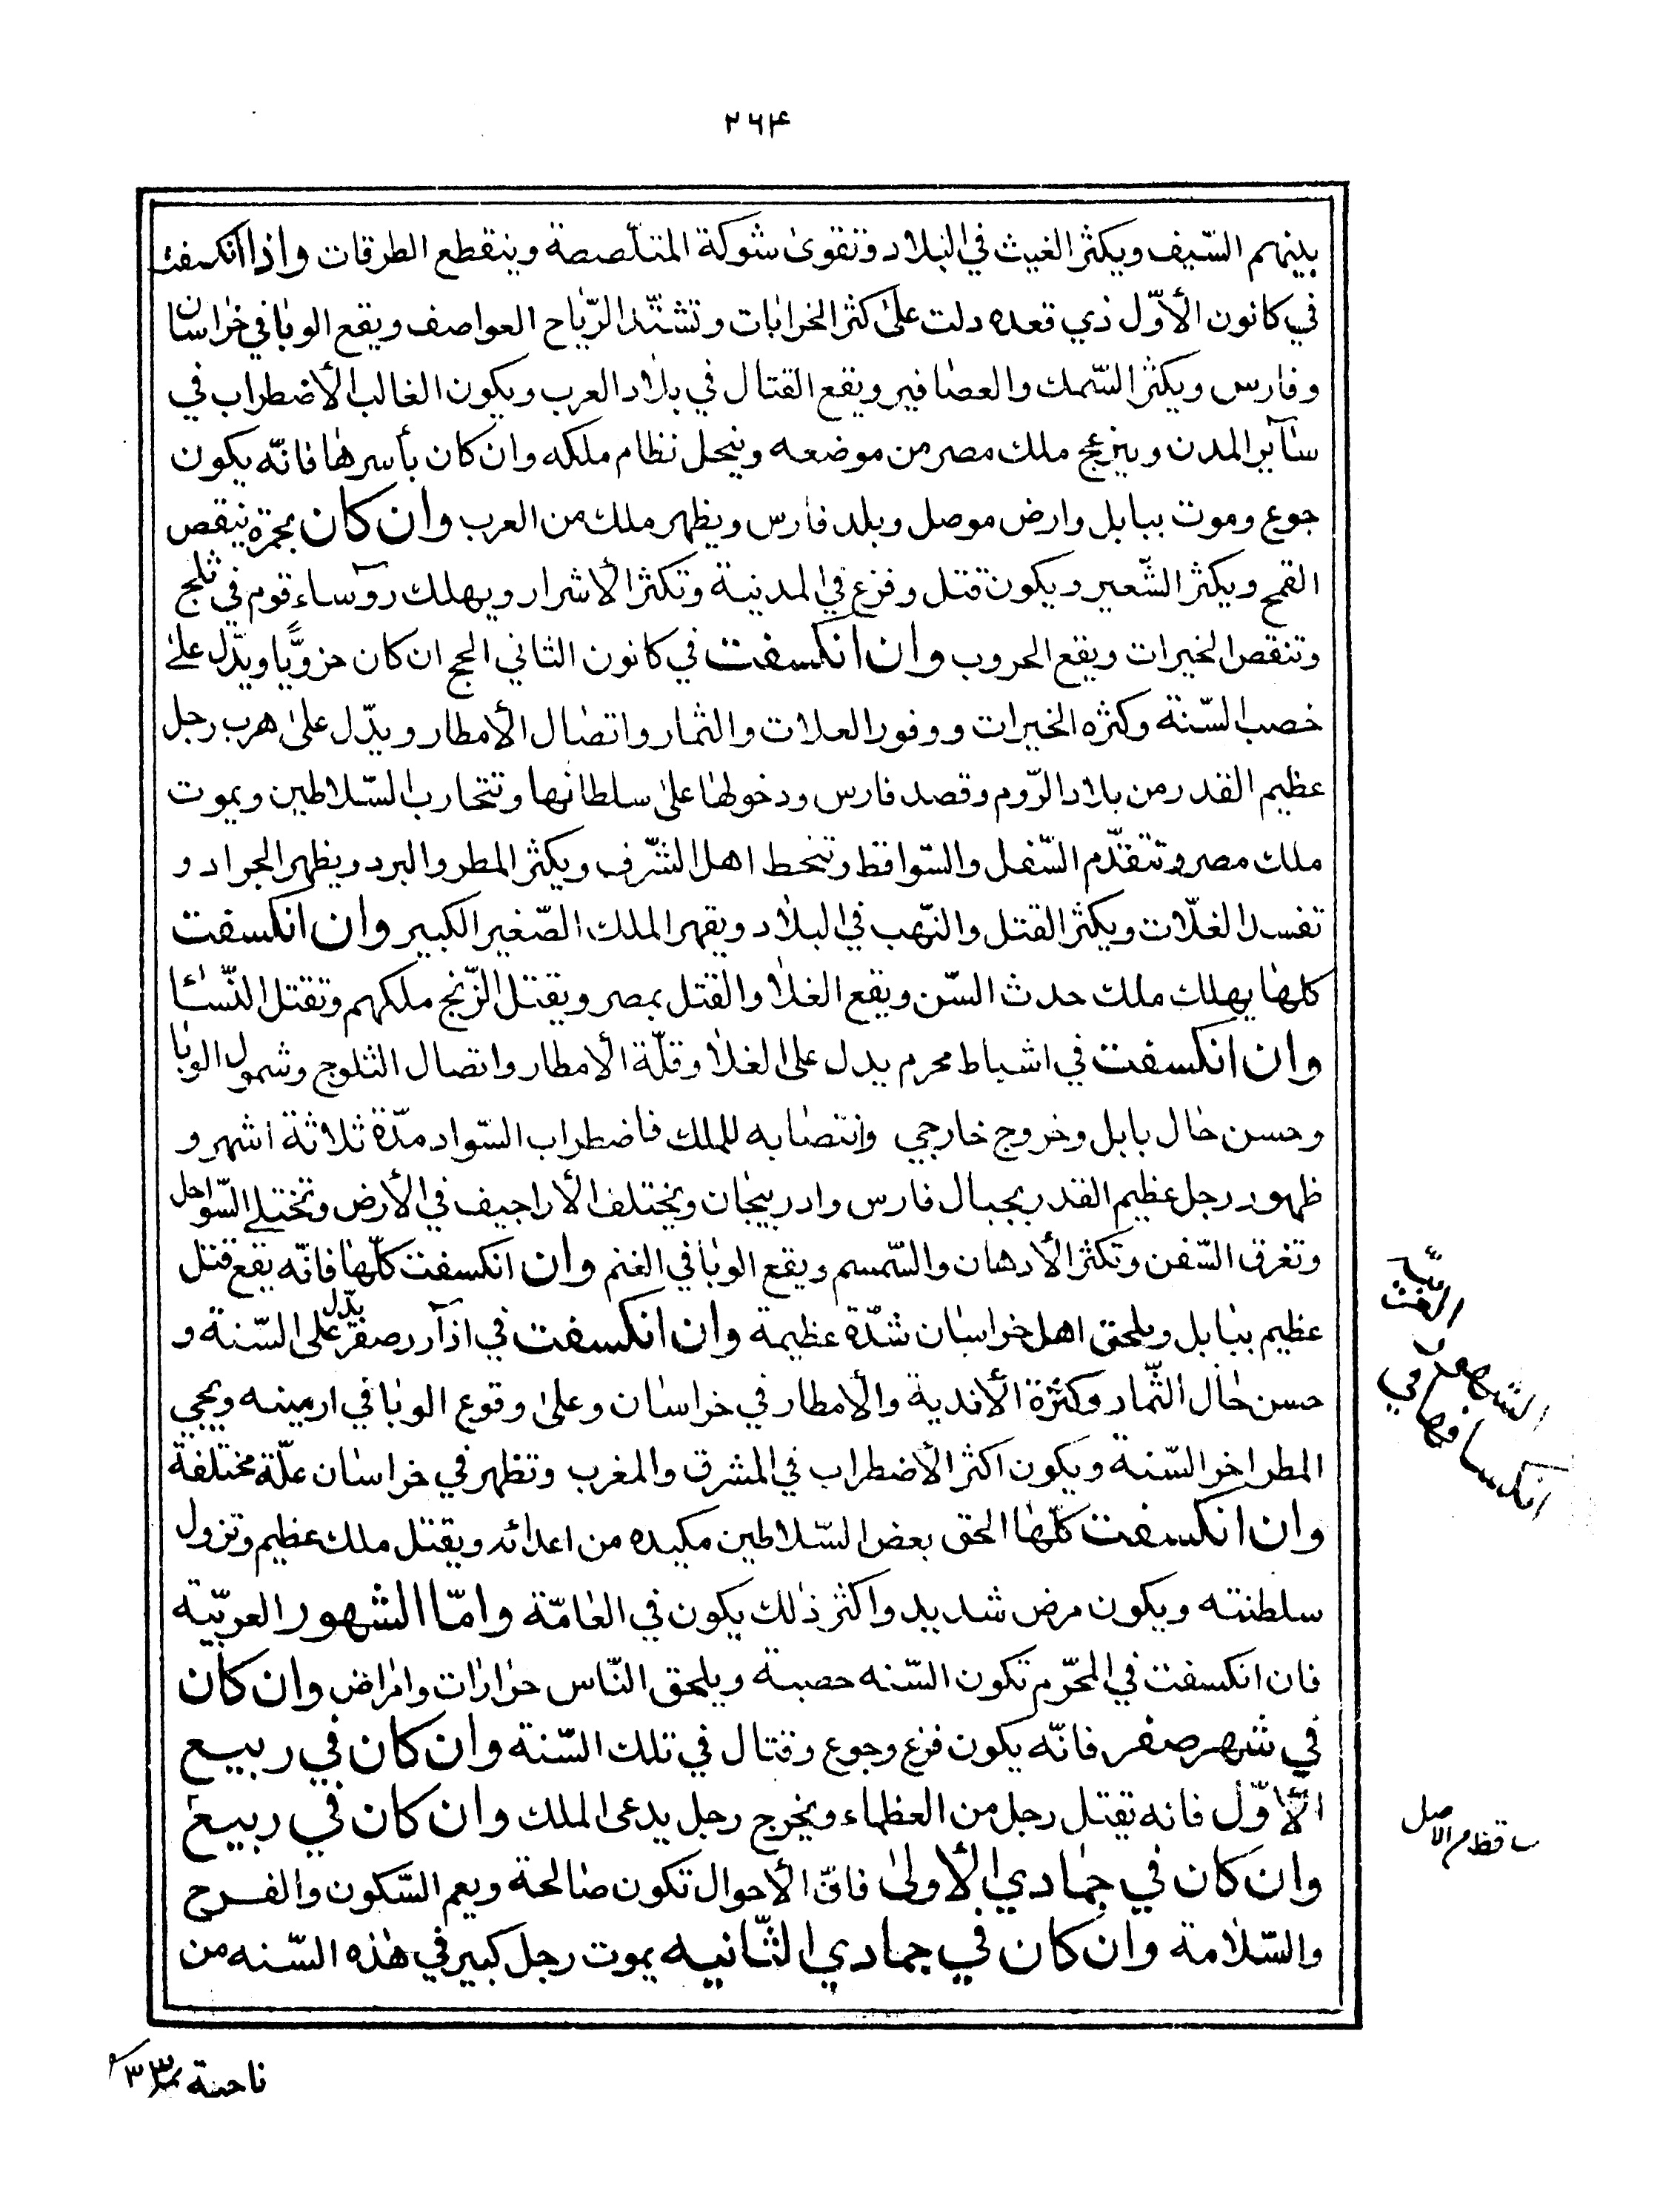 ٢٦۴
بينهم السّيف ويكثر الغيث في البلاد وتقوى شوكة المتلّصصة وينقطع الطرقات واذا انكسفت
في كانون الأوّل ذي قعده دلت على كثر الخرابات وتشتدّ الرّياح العواصف ويقع الوبا في خراسان
وفارس ويكثر السّمك والعصافير ويقع القتال في بلاد العرب ويكون الغالب الأضطراب في
سآير المدن وينزعج ملك مصر من موضعه وينحل نظام ملكه وان كان بأسرها فانّه يكون
جوع وموت ببابل وارض موصل وبلد فارس ويظهر ملك من العرب وان كان بحمرة ينقص
القمح ويكثر الشّعير ويكون قتل وفزع في المدينة وتكثر الأشرار ويهلك روساء قوم في ثلج
وتنقص الخيرات ويقع الحروب وان انكسفت في كانون الثاني الحج ان كان جزويًّا ويدّل على
خصب السّنة وكثره الخيرات ووفور العلات والثمار واتصال الأمطار ويدّل على هرب رجل
عظيم القدر من بلاد الرّوم وقصد فارس ودخولها على سلطانها وتتحارب السّلاطين ويموت
ملك مصر وتتقدّم السّفل والسّواقط وتنحط اهل الشّرف ويكثر المطر والبرد ويظهر الجراد و
تفسد الغلّات ويكثر القتل والنّهب في البلاد ويقهر الملك الصّغير الكبير وان انكسفت
كلها يهلك ملك حدث السّن ويقع الغلا والقتل بمصر ويقتل الزّنج ملكهم وتقتل النّسا
وان انكسفت في اشباط محرم يدل على الغلا وقلّة الأمطار واتصال الثلوج وشمول الوبا
وحسن حال بابل وخروج خارجي وانتصابه للملك فاضطراب السّواد مدّة ثلاثة اشهر و
ظهور رجل عظيم القدر بجبال فارس وادربيجان ويختلف الأراجيف في الأرض وتختلي السّواحل
وتغرق السّفن وتكثر الأدهان والسّمسم ويقع الوبا في الغنم وان انكسفت كلّها فانّه يقع قتل
عظيم ببابل ويلحق اهل خراسان شدّة عظيمة وان انكسفت في اذآر صفر يدّل على السّنة و
حسن حال الثّمار وكثرة الأندية والأمطار في خراسان وعلى وقوع الوبا في ارمينه ويجي
المطر اخر السّنة ويكون اكثر الأضطراب في المشرق والمغرب وتظهر في خراسان علّة مختلفة
وان انكسفت كلّها الحق بعض السّلاطين مكيده من اعدائه ويقتل ملك عظيم وتزول
سلطنته ويكون مرض شديد واكثر ذلك يكون في العامّة وامّا الشهور العربيّة
فان انكسفت في المحرّم تكون السّنه حصبة ويلحق النّاس حرارات وامراض وان كان
في شهر صفر فانّه يكون فزع وجوع وقتال في تلك السّنة وان كان في ربيع
الأوّل فانه يقتل رجل من العظماء ويخرج رجل يدعى الملك وان كان في ربيع
وان كان في جمادي الأولى فانّ الأحوال تكون صالحة ويعم السّكون والفرح
والسّلامة وان كان في جمادي الثّانيه يموت رجل كبير في هذه السّنه من
الشهور
انكسافها في
ساقط م الاصل
ناحية